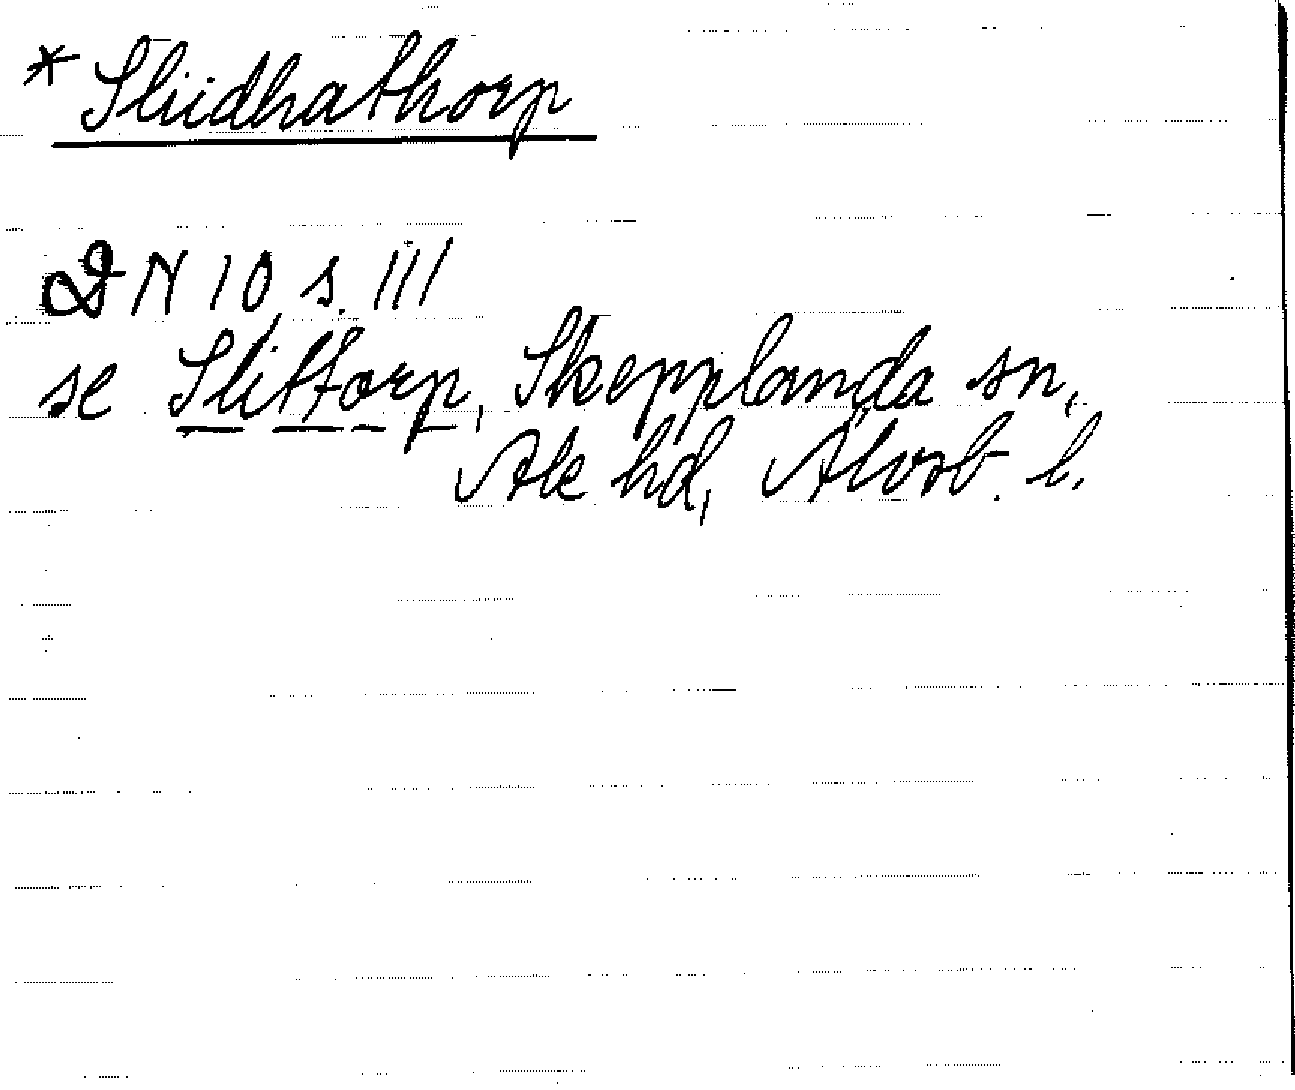 * Sliidhathorp
DN 10 s. 111
se Slittorp, Skepplanda sn,
Ale hd, Älvsb. l.